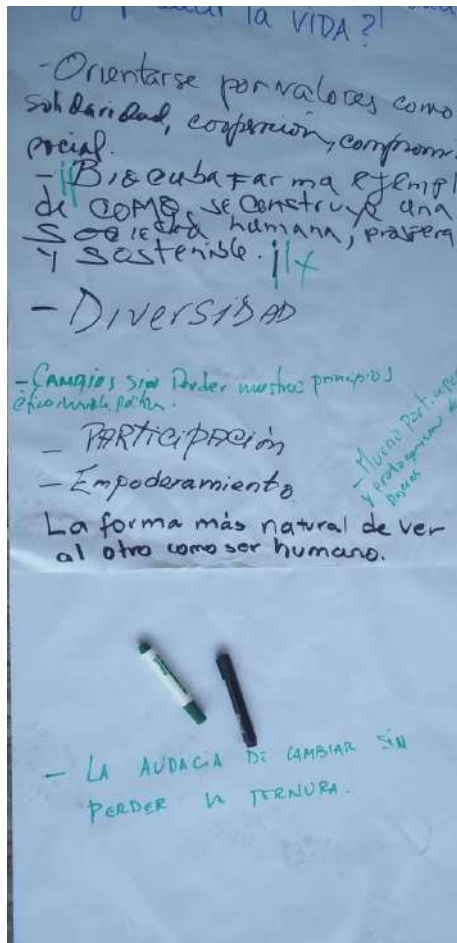 la VIDA?
- Orientarse por valores como
solidaridad, cooperación, compromi
social.
- ¡¡BioCubaFarma ejempl
de COMO se construye una
sociedad humana, prospera
y sostenible. ¡¡
- DIVERSIDAD
- CAMBIOS sin Perder nuestros principios
- PARTICIPACIÓN
- Mucha participa
y protagonismo de
- Empoderamiento
La forma más natural de ver
al otro como ser humano.
- LA AUDACIA DE CAMBIAR SIN
PERDER LA TERNURA.